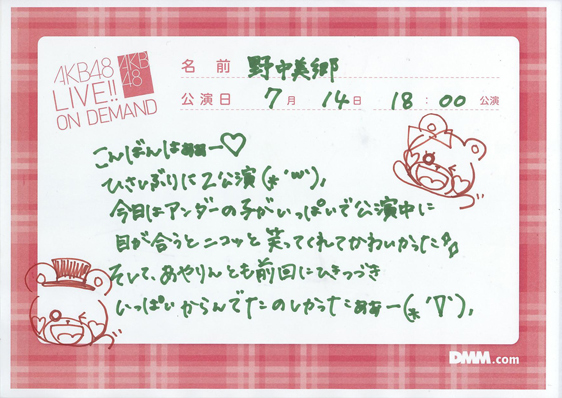 AKB48
LIVE!!
ON DEMAND
AKB
48
名前 野中美郷
公演日 7月 14日 18:00 公演
こんばんはぁぁー♡
ひさしぶりに公演(*'''),
今日はアンダーの子がいっぱいで公演中に
目が合うとニコッと笑ってくれてかわいかった♪
そして、あやりんとも前回にひきつづき
いっぱいからんでたのしかったぁぁー(*'∇'),
DMM.com